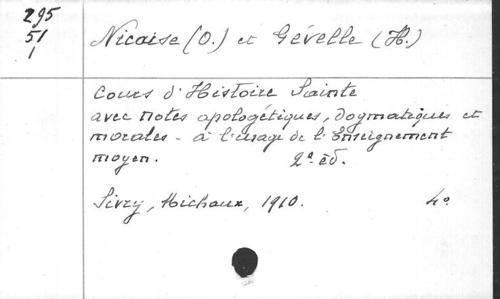 295
51
1
Nicaise (O.) et Gévelle (H.)
Cours d'Histoire Sainte
avec notes apologétiques, dogmatiques et
morales - à l'usage de l'Enseignement
moyen. 2e éd.
Sivry, Michaux, 1910. 4o